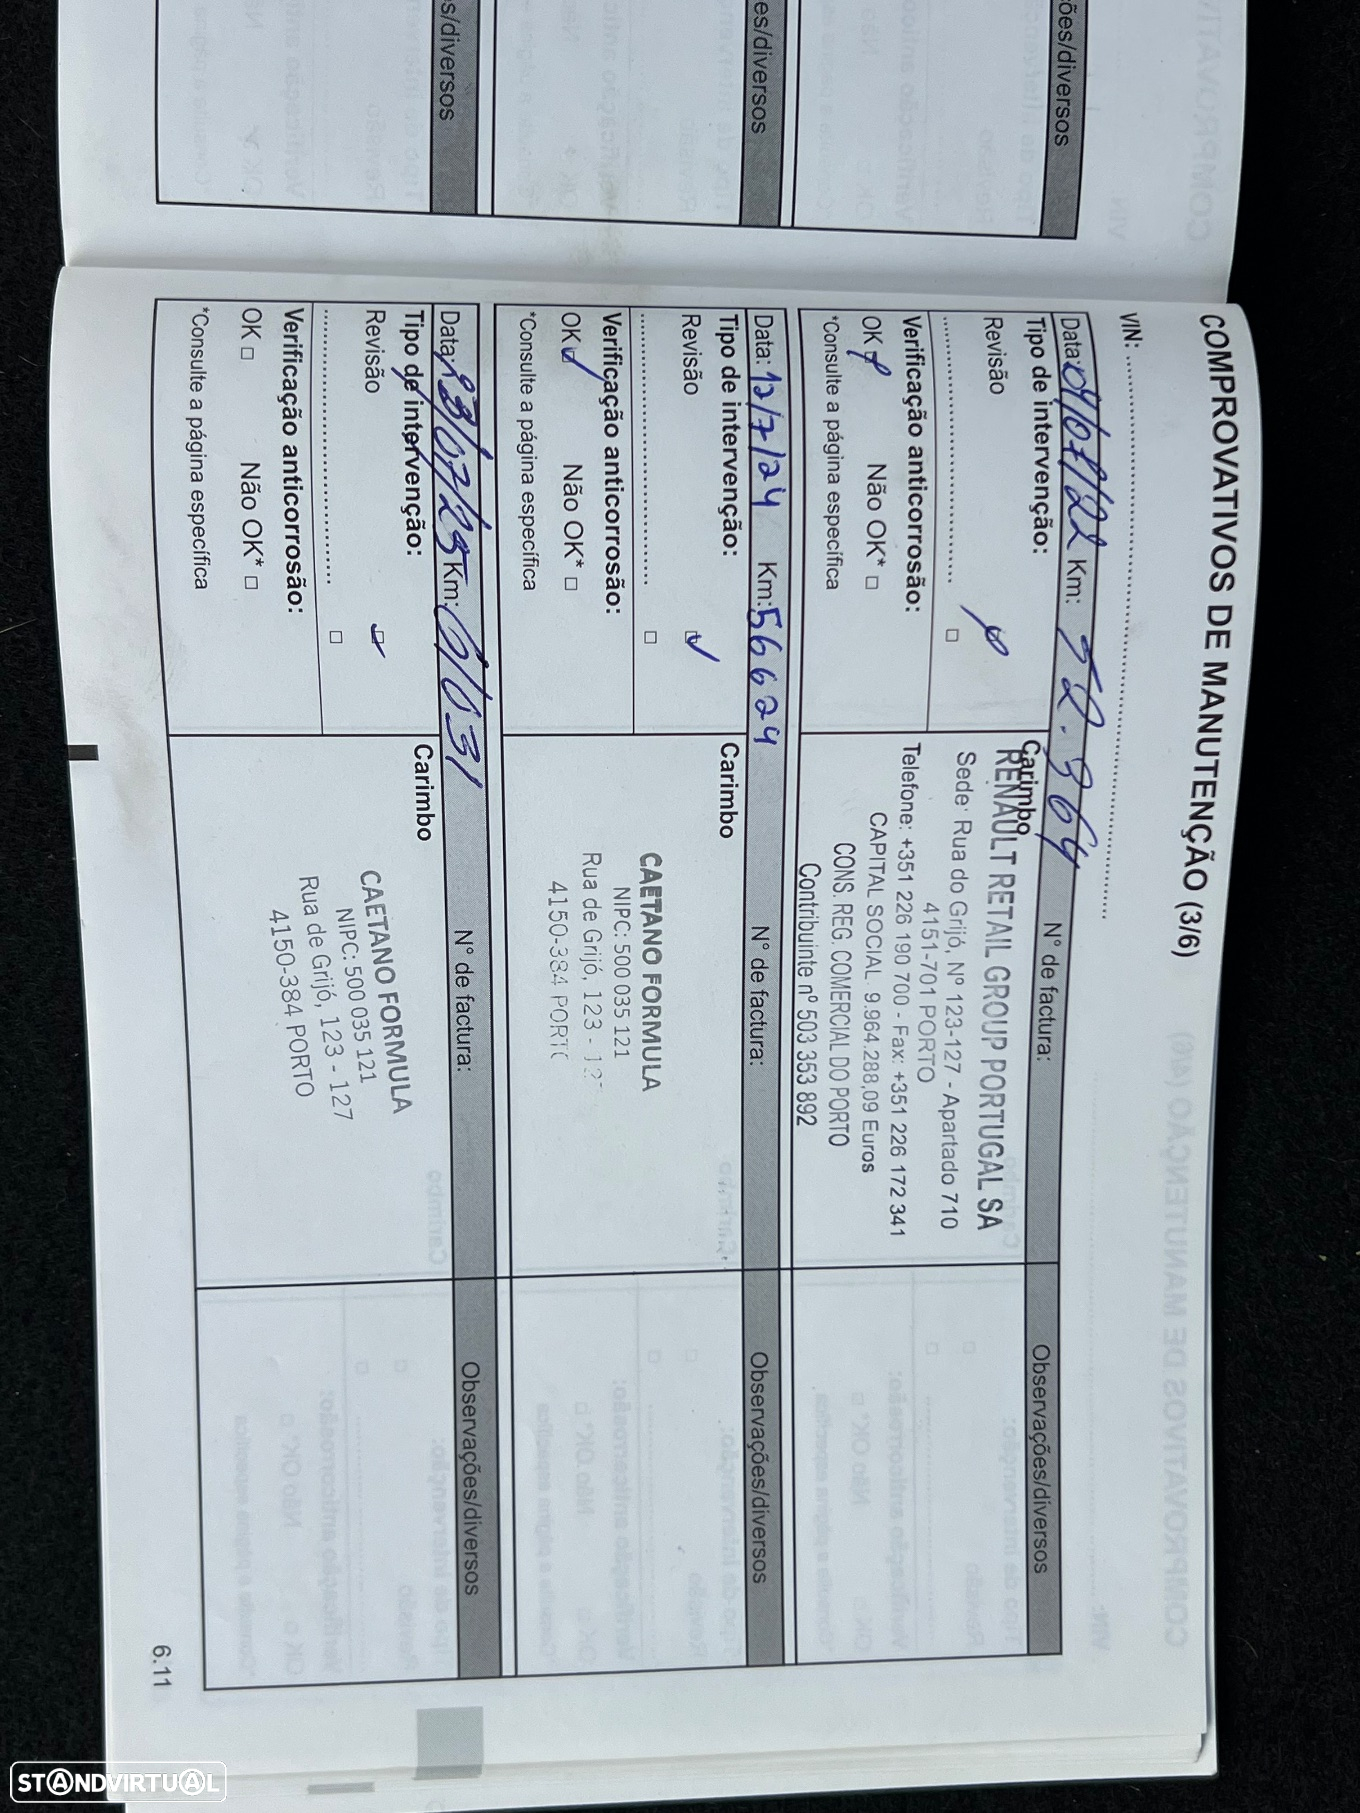 COMPROVATIVOS DE MANUTENÇÃO (3/6)
VIN: ............................................................
Data: 04/07/22 Km: 52.364 N° de factura: Observações/diversos
Tipo de intervenção:
Revisão
............................................ □
Verificação anticorrosão:
OK Não OK* □
*Consulte a página específica
Carimbo
RENAULT RETAIL GROUP PORTUGAL SA
Sede: Rua do Grijó, Nº 123-127 - Apartado 710
4151-701 PORTO
Telefone: +351 226 190 700 - Fax: +351 226 172 341
CAPITAL SOCIAL 9.964.288,09 Euros
CONS. REG. COMERCIAL DO PORTO
Contribuinte nº 503 353 892
Data: 12/7/24 Km: 56624 N° de factura: Observações/diversos
Tipo de intervenção:
Revisão
............................................ □
Verificação anticorrosão:
OK Não OK* □
*Consulte a página específica
Carimbo
CAETANO FORMULA
NIPC: 500 035 121
Rua de Grijó, 123 - 12
4150-384 PORTO
Data: 23/07/25 Km: 61031 N° de factura: Observações/diversos
Tipo de intervenção:
Revisão
............................................ □
Verificação anticorrosão:
OK □ Não OK* □
*Consulte a página específica
Carimbo
CAETANO FORMULA
NIPC: 500 035 121
Rua de Grijó, 123 - 127
4150-384 PORTO
6.11
ões/diversos
es/diversos
s/diversos
STANDVIRTUAL